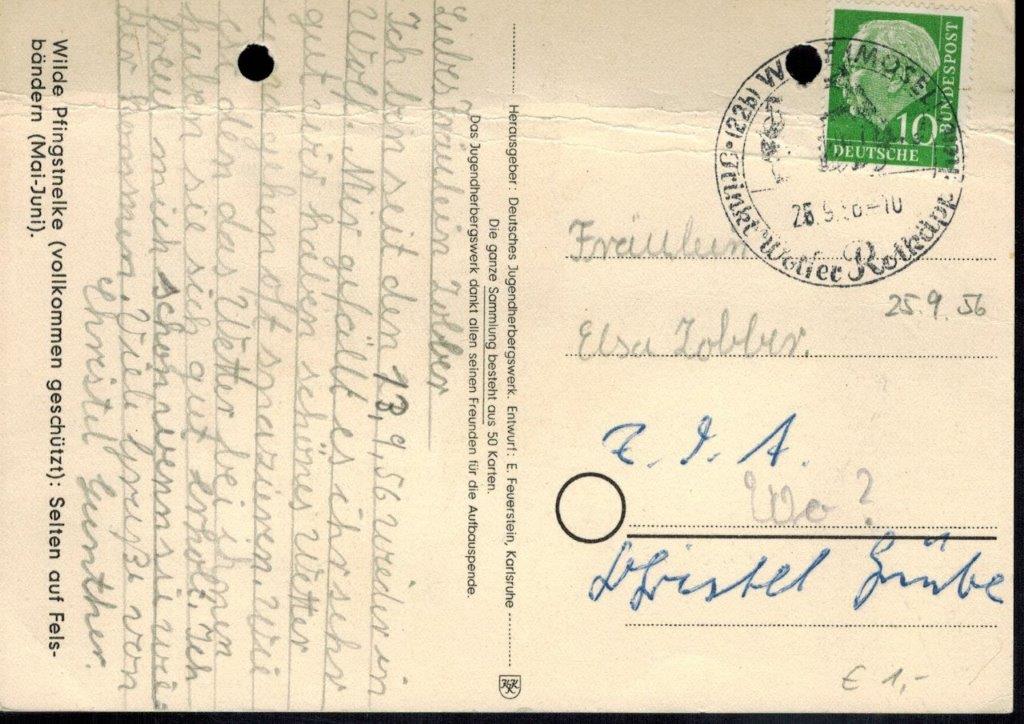 Liebes Fräulein Zobber
Ich bin seit den 13.9.56 wieder in
Wolf. Mir gefällt es ihr sehr
gut wir haben schönes Wetter
gehen oft spazieren. Wie
ist den das Wetter bei ihnen
haben sie sich gut erholt. Ich
freue mich schon wenn sie wie-
der kommen. Viele Grüße von
Christel Günther.
Wilde Pfingstnelke (vollkommen geschützt): Selten auf Fels-
bändern (Mai-Juni).
Herausgeber: Deutsches Jugendherbergswerk. Entwurf: E. Feuerstein, Karlsruhe
Die ganze Sammlung besteht aus 50 Karten.
Das Jugendherbergswerk dankt allen seinen Freunden für die Aufbauspende.
DEUTSCHE
BUNDESPOST
10
(22b) (MOSEL)
Trinkt Wolfer
-10
25.9.56
Fräulein
Elsa Zobber.
Z. I. A.
Wo?
€ 1,-